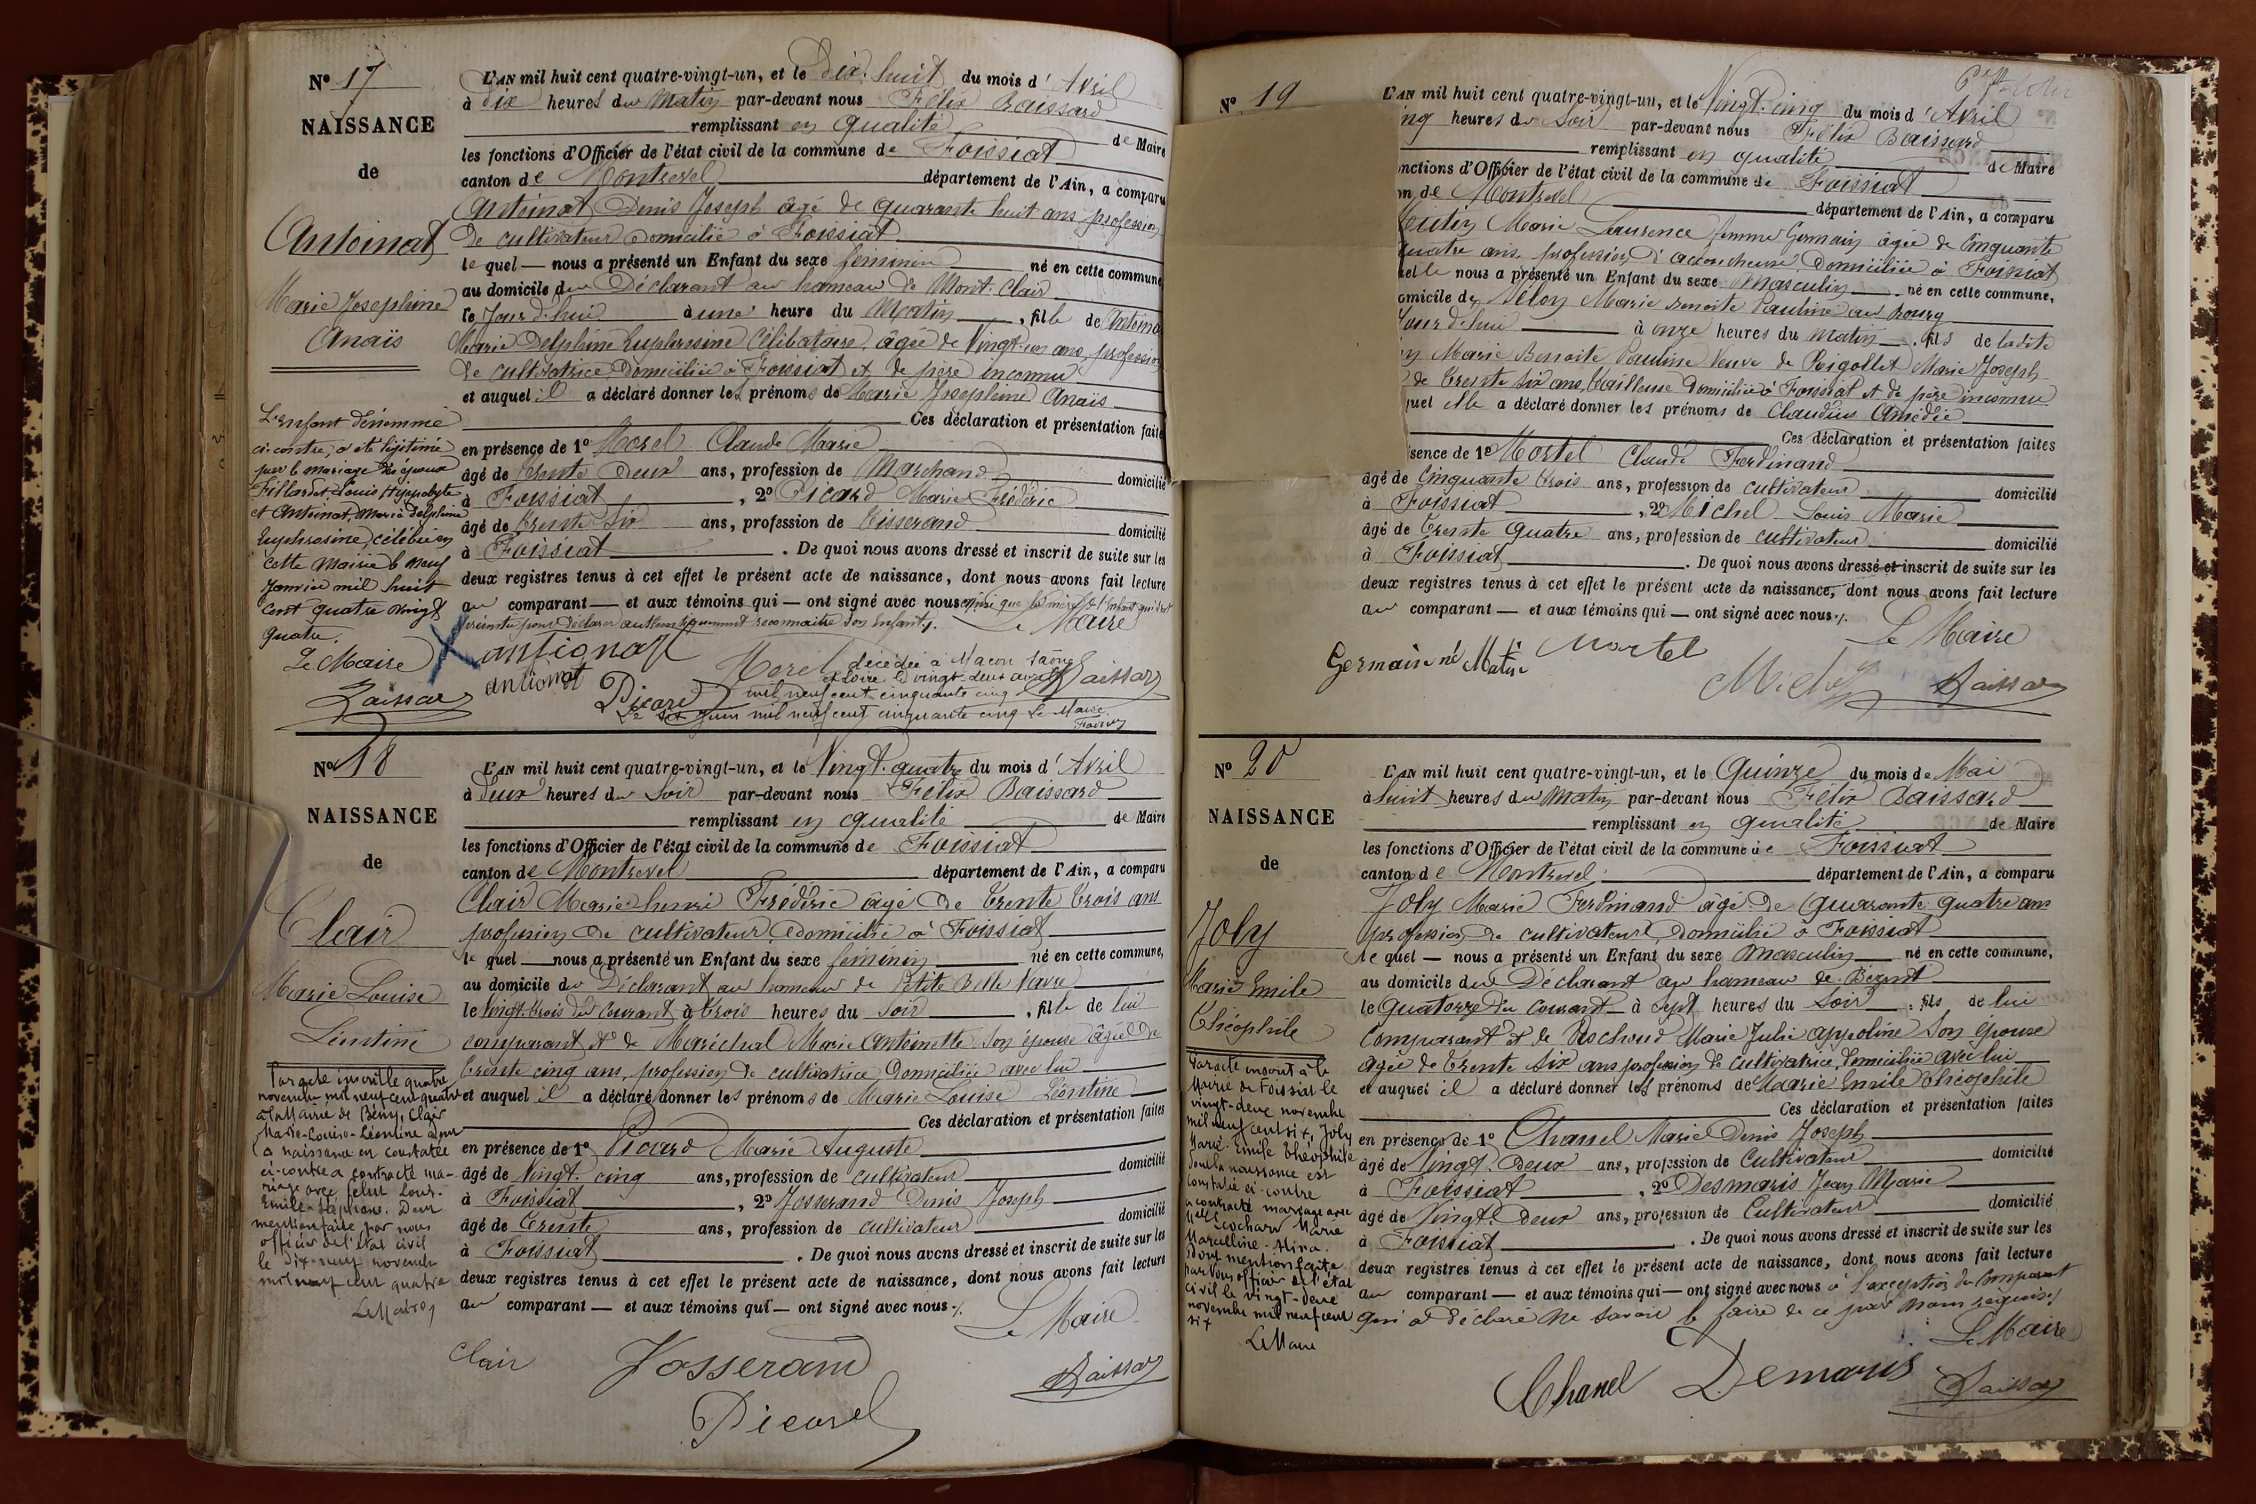 N° 17
NAISSANCE
de
Antoinat
Marie Josephine
Anaïs
L'enfant dénommé
ci-contre, a été légitimé
par le mariage des époux
Fillardet, Louis Hyppolyte
et Antoinat, Marie Delphine
Euphrosine, célébré en
cette Mairie le neuf
Janvier mil huit
cent quatre vingt
quatre.
Le Maire
L'AN mil huit cent quatre-vingt-un, et le Dix-huit du mois d'Avril
à dix heures du Matin par-devant nous Félix Baissard
remplissant en qualité de Maire
les fonctions d'Officier de l'état civil de la commune de Foissiat
canton de Montrevel département de l'Ain, a comparu
Antoinat Denis Joseph âgé de quarante huit ans, profession
de cultivateur domicilié à Foissiat
lequel — nous a présenté un Enfant du sexe féminin né en cette commune
au domicile du Déclarant au hameau de Mont-Clair
le Jour d'hui à une heure du Matin, fille de Antoina
Marie Delphine Euphrosine Célibataire, âgée de Vingt-un ans, profession
de cultivatrice, Domiciliée à Foissiat et de père inconnu
et auquel il a déclaré donner les prénoms de Marie Josephine Anaïs
Ces déclaration et présentation faites
en présence de 1° Morel Claude Marie
âgé de Trente Deux ans, profession de Marchand domicilié
à Foissiat, 2° Picard Marie Frédéric
âgé de Trente Six ans, profession de Tisserand domicilié
à Foissiat. De quoi nous avons dressé et inscrit de suite sur les
deux registres tenus à cet effet le présent acte de naissance, dont nous avons fait lecture
au comparant — et aux témoins qui — ont signé avec nous ainsi que la mère de l'enfant qui s'est
présentée pour déclarer authentiquement reconnaitre son enfant.
Le Maire
antignat
antionat
Morel
Picard
Baissard
décédée à Macon Saône
et Loire le vingt-deux avril
mil neuf cent cinquante cinq
Le six juin mil neuf cent cinquante cinq Le Maire
N° 18
NAISSANCE
de
Clair
Marie Louise
Léontine
Par acte inscrit le quatre
novembre mil neuf cent quatre
à la Mairie de Bény, Clair
Marie-Louise-Léontine dont
la naissance est constatée
ci-contre a contracté ma-
riage avec Louis
Emile. Dont
mention faite par nous
officier de l'état civil
le dix-neuf novembre
mil neuf cent quatre
Le Maire
L'AN mil huit cent quatre-vingt-un, et le Vingt-quatre du mois d'Avril
à Deux heures du Soir par-devant nous Félix Baissard
remplissant en qualité de Maire
les fonctions d'Officier de l'état civil de la commune de Foissiat
canton de Montrevel département de l'Ain, a comparu
Clair Marie henri Frédéric âgé de Trente Trois ans
profession de cultivateur domicilié à Foissiat
lequel — nous a présenté un Enfant du sexe féminin né en cette commune,
au domicile du Déclarant au hameau de Petite Belle Vavre
le Vingt-trois du Courant à Trois heures du Soir, fille de lui
comparant et de Maréchal Marie Antoinette son épouse âgée de
Trente cinq ans, profession de cultivatrice Domiciliée avec lui
et auquel il a déclaré donner les prénoms de Marie Louise Léontine
Ces déclaration et présentation faites
en présence de 1° Picard Marie Auguste
âgé de Vingt-cinq ans, profession de cultivateur domicilié
à Foissiat, 2° Josserand Denis Joseph
âgé de Trente ans, profession de cultivateur domicilié
à Foissiat. De quoi nous avons dressé et inscrit de suite sur les
deux registres tenus à cet effet le présent acte de naissance, dont nous avons fait lecture
au comparant — et aux témoins qui — ont signé avec nous.
Le Maire
Clair Josserand
Baissard
Picard
N° 19
L'AN mil huit cent quatre-vingt-un, et le Vingt-cinq du mois d'Avril
inq heures du Soir par-devant nous Félix Baissard
remplissant en qualité de Maire
nctions d'Officier de l'état civil de la commune de Foissiat
n de Montrevel département de l'Ain, a comparu
Mutin Marie Laurence femme Germain âgée de Cinquante
quatre ans, profession d'accoucheuse Domiciliée à Foissiat
uelle nous a présenté un Enfant du sexe Masculin né en cette commune,
omicile de Marie Benoite Pauline au Bourg
jour d'hui à onze heures du matin, fils de ladite
Marie Benoite Pauline Veuve de Poigollet Marie Joseph
de Trente Six ans, Tailleuse Domiciliée à Foissiat et de père inconnu
quel elle a déclaré donner les prénoms de Claudius Amédée
Ces déclaration et présentation faites
sence de 1° Mortel Claude Ferdinand
âgé de Cinquante Trois ans, profession de cultivateur domicilié
à Foissiat, 2° Michel Louis Marie
âgé de Trente Quatre ans, profession de cultivateur domicilié
à Foissiat. De quoi nous avons dressé et inscrit de suite sur les
deux registres tenus à cet effet le présent acte de naissance, dont nous avons fait lecture
au comparant — et aux témoins qui — ont signé avec nous.
Le Maire
Germain né Mutin Mortel
Michel Baissard
N° 20
NAISSANCE
de
Joly
Marie Emile
Théophile
Par acte inscrit à la
Mairie de Foissiat le
vingt-deux novembre
mil neuf cent six, Joly
Marie-Emile Théophile
dont la naissance est
constatée ci-contre
a contracté mariage avec
Mlle Cochard Marie
Marcelline-Alina.
Dont mention faite
par nous officier de l'état
civil le vingt-deux
novembre mil neuf cent
six
Le Maire
L'AN mil huit cent quatre-vingt-un, et le Quinze du mois de Mai
à huit heures du Matin par-devant nous Félix Baissard
remplissant en qualité de Maire
les fonctions d'Officier de l'état civil de la commune de Foissiat
canton de Montrevel département de l'Ain, a comparu
Joly Marie Ferdinand âgé de Quarante quatre ans
profession de cultivateur, domicilié à Foissiat
lequel — nous a présenté un Enfant du sexe Masculin né en cette commune,
au domicile du Déclarant au hameau de Bézent
le Quatorze du Courant à Sept heures du Soir, fils de lui
comparant et de Pochoud Marie Julie appoline son épouse
âgée de Trente Six ans profession de cultivatrice, Domiciliée avec lui
et auquel il a déclaré donner les prénoms de Marie Emile Théophile
Ces déclaration et présentation faites
en présence de 1° Chanel Marie Denis Joseph
âgé de Vingt-Deux ans, profession de Cultivateur domicilié
à Foissiat, 2° Desmaris Jean Marie
âgé de Vingt-Deux ans, profession de Cultivateur domicilié
à Foissiat. De quoi nous avons dressé et inscrit de suite sur les
deux registres tenus à cet effet le présent acte de naissance, dont nous avons fait lecture
au comparant — et aux témoins qui — ont signé avec nous à l'exception du Comparant
qui a déclaré ne savoir le faire de ce par nous requis.
Le Maire
Chanel Demaris
Baissard